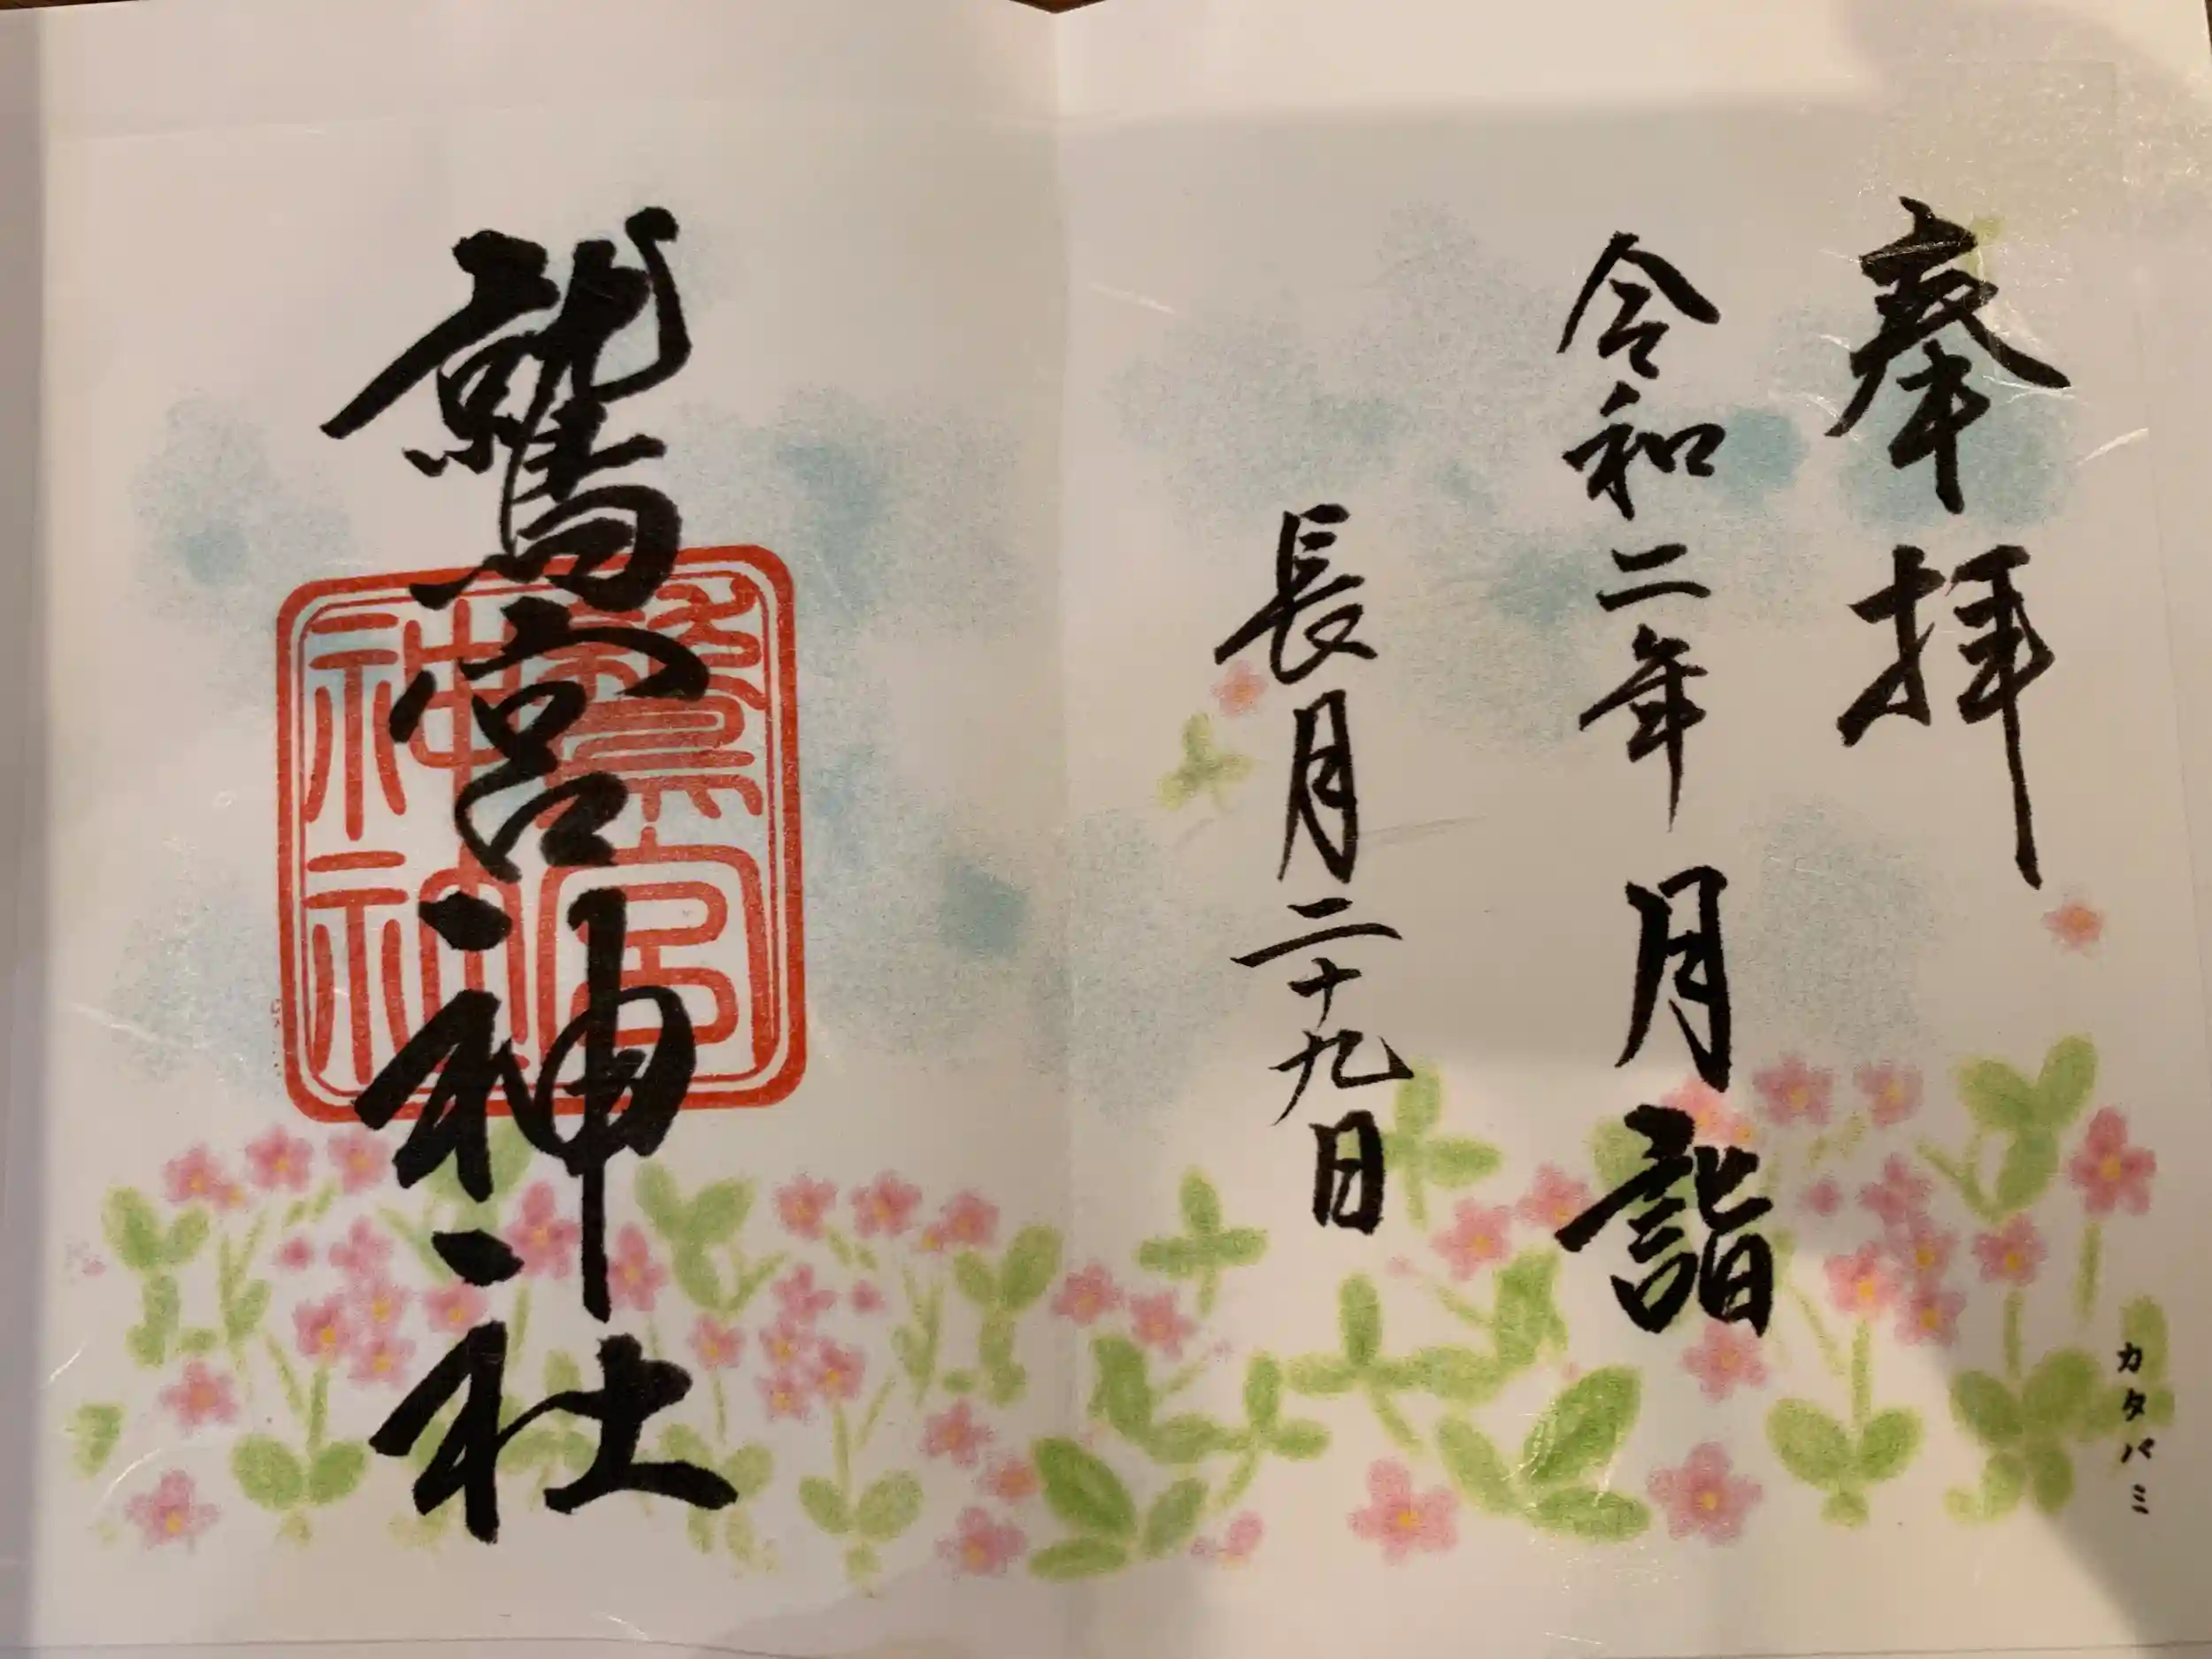 奉拝
令和二年 月詣
長月二十九日
鷲宮神社
鷲宮
神社
カタバミ